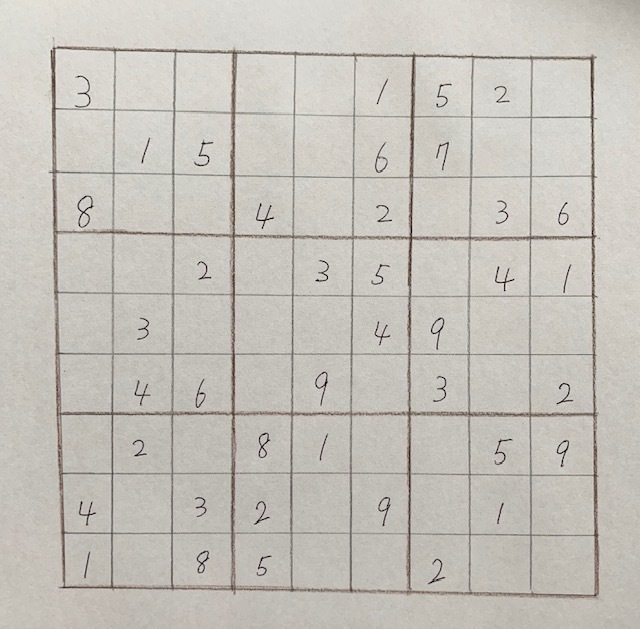 3 1 5 2
1 5 6 7
8 4 2 3 6
2 3 5 4 1
3 4 9
4 6 9 3 2
2 8 1 5 9
4 3 2 9 1
1 8 5 2